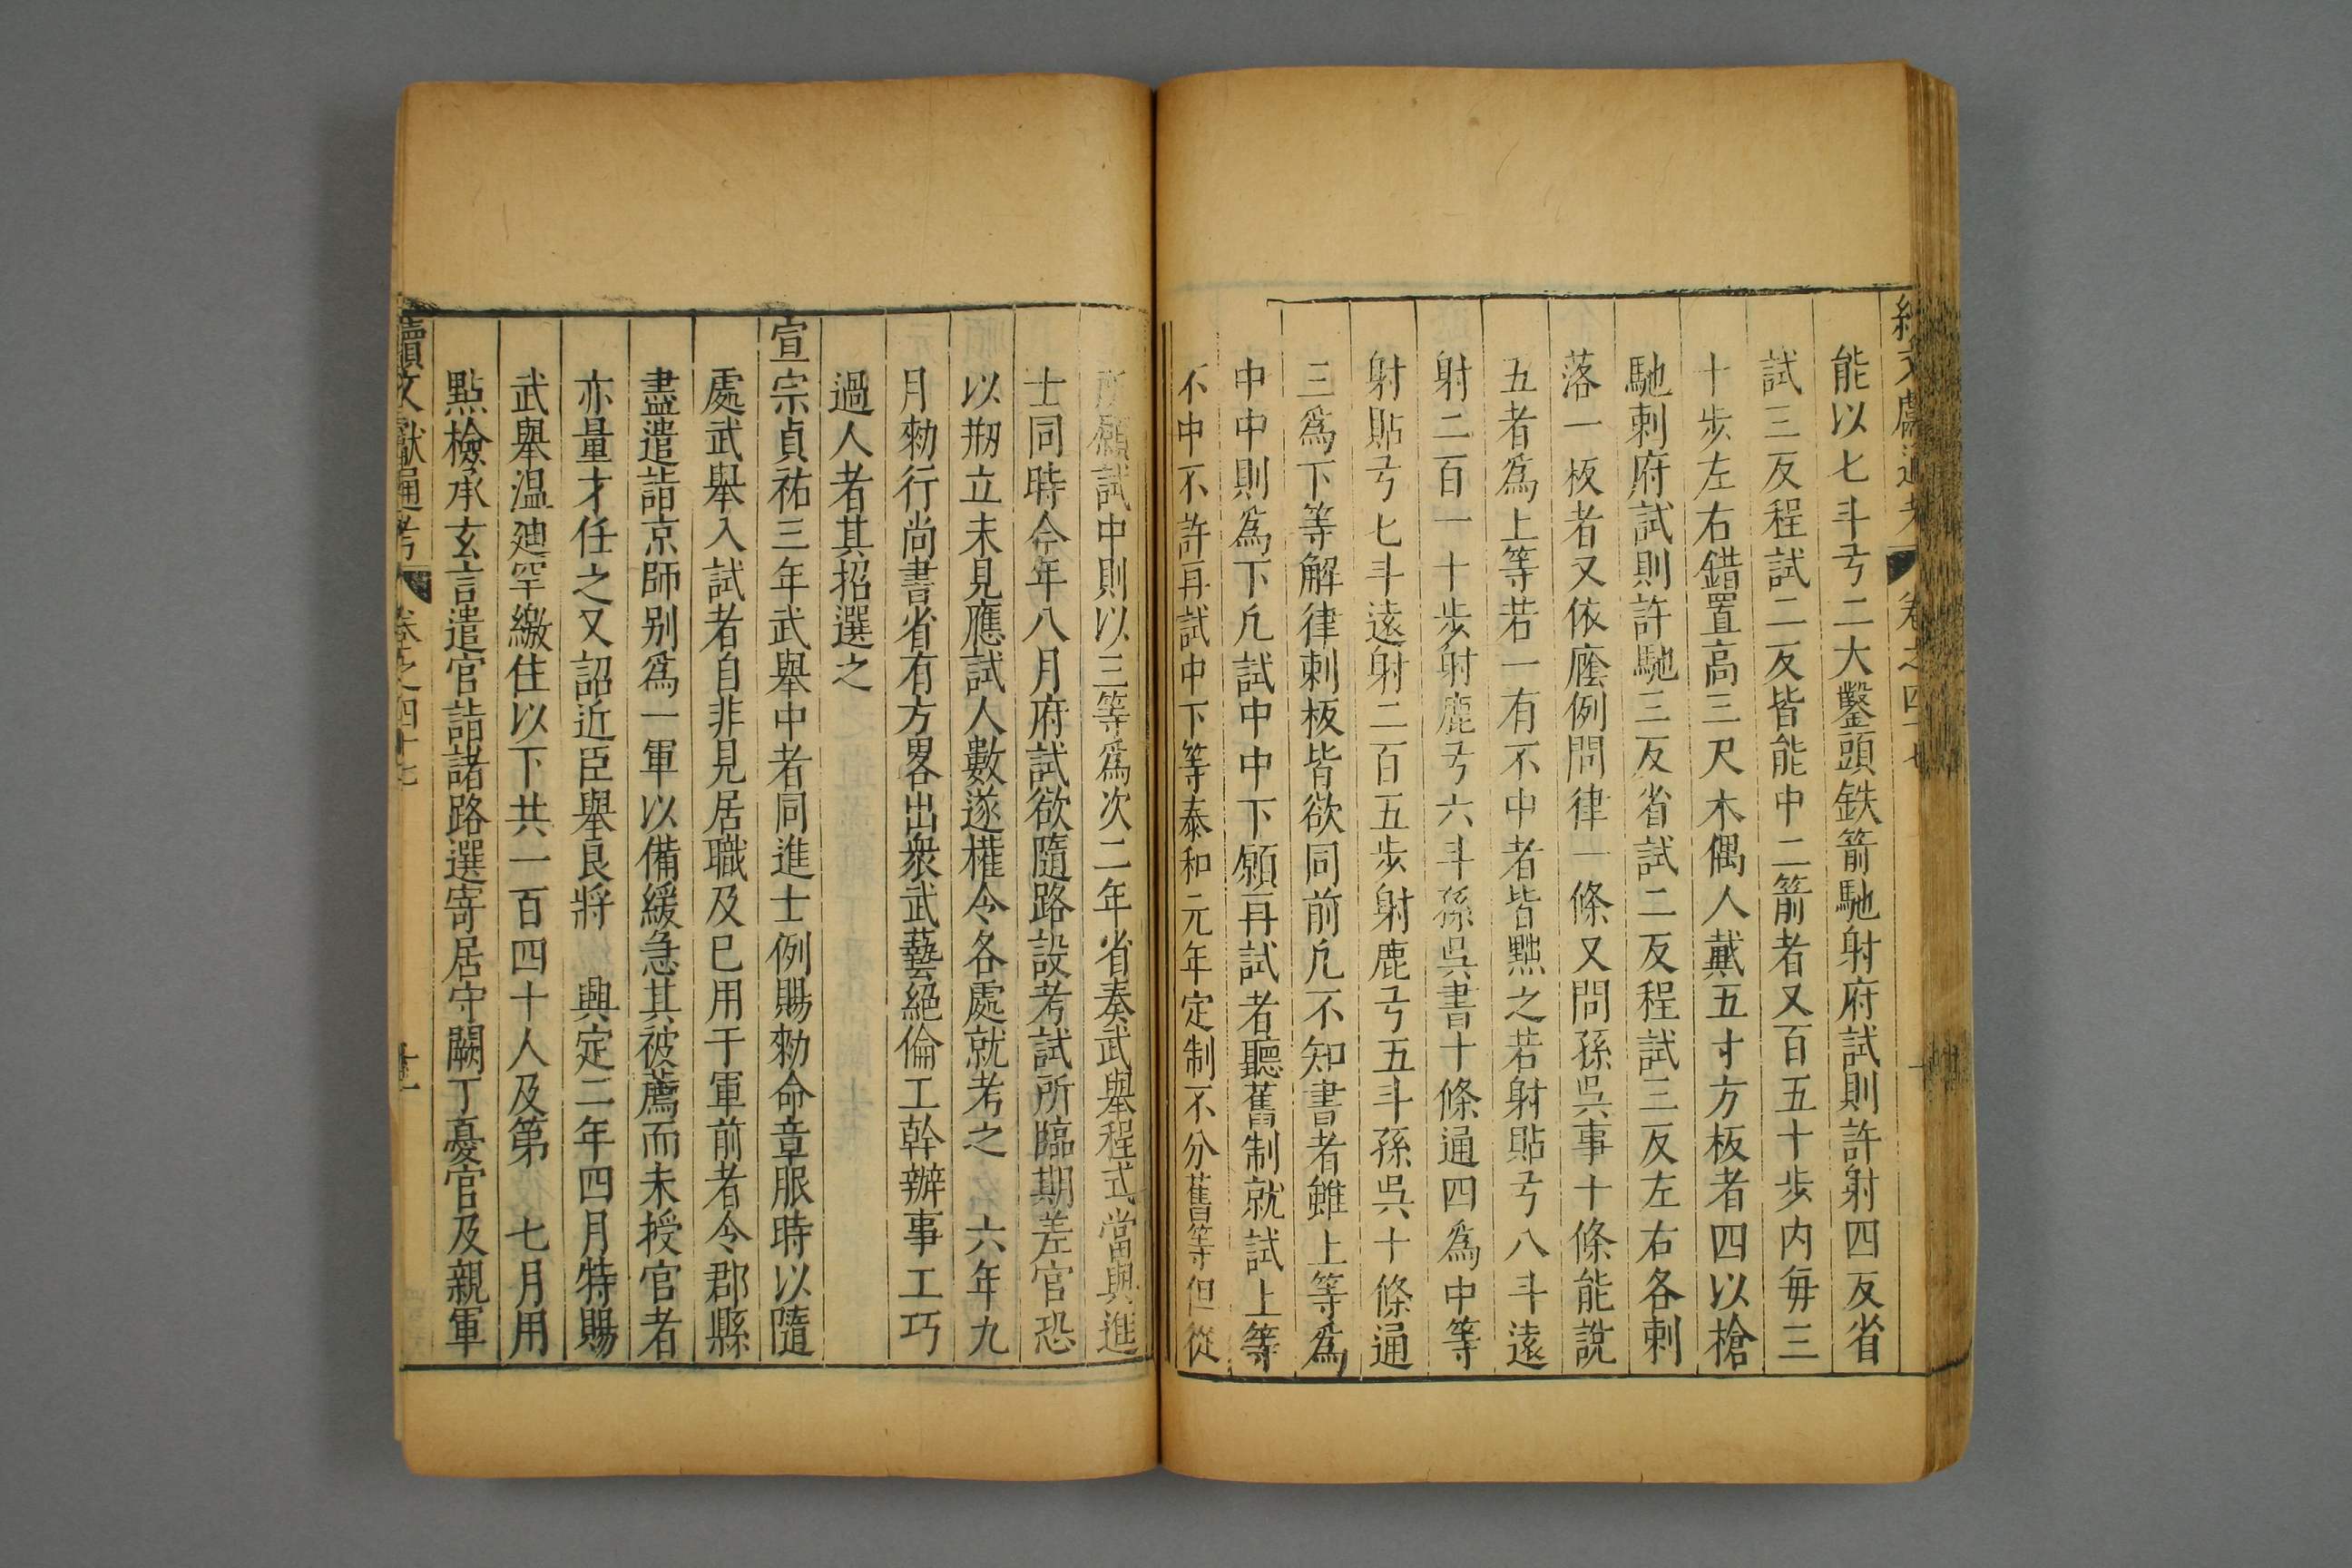 續文獻通考 卷之四十七
能以七斗弓二大鑿頭鉄箭馳射府試則許射四反省
試三反程試二反皆能中二箭者又百五十步内每三
十步左右錯置高三尺木偶人戴五寸方板者四以槍
馳刺府試則許馳三反省試二反程試三反左右各刺
落一板者又依廕例問律一條又問孫吳事十條能說
五者爲上等若一有不中者皆黜之若射貼弓八斗遠
射二百一十步射鹿弓六斗孫吳書十條通四爲中等
射貼弓七斗遠射二百五步射鹿弓五斗孫吳十條通
三爲下等解律刺板皆欲同前凢不知書者雖上等爲
中中則爲下凢試中中下願再試者聽舊制就試上等
不中不許再試中下等泰和元年定制不分舊等但從
所願試中則以三等爲次二年省奏武舉程式當與進
士同時今年八月府試欲隨路設考試所臨期差官恐
以剏立未見應試人數遂權令各處就考之 六年九
月勑行尚書省有方畧出衆武藝絕倫工幹辦事工巧
過人者其招選之
宣宗貞祐三年武舉中者同進士例賜勑命章服時以隨
處武舉入試者自非見居職及已用于軍前者令郡縣
盡遣詣京師别爲一軍以備緩急其被薦而未授官者
亦量才任之又詔近臣舉良將 興定二年四月特賜
武舉溫廸罕繳住以下共一百四十人及第 七月用
點檢承玄言遣官詣諸路選寄居守闕丁憂官及親軍
續文獻通考 卷之四十七 十一